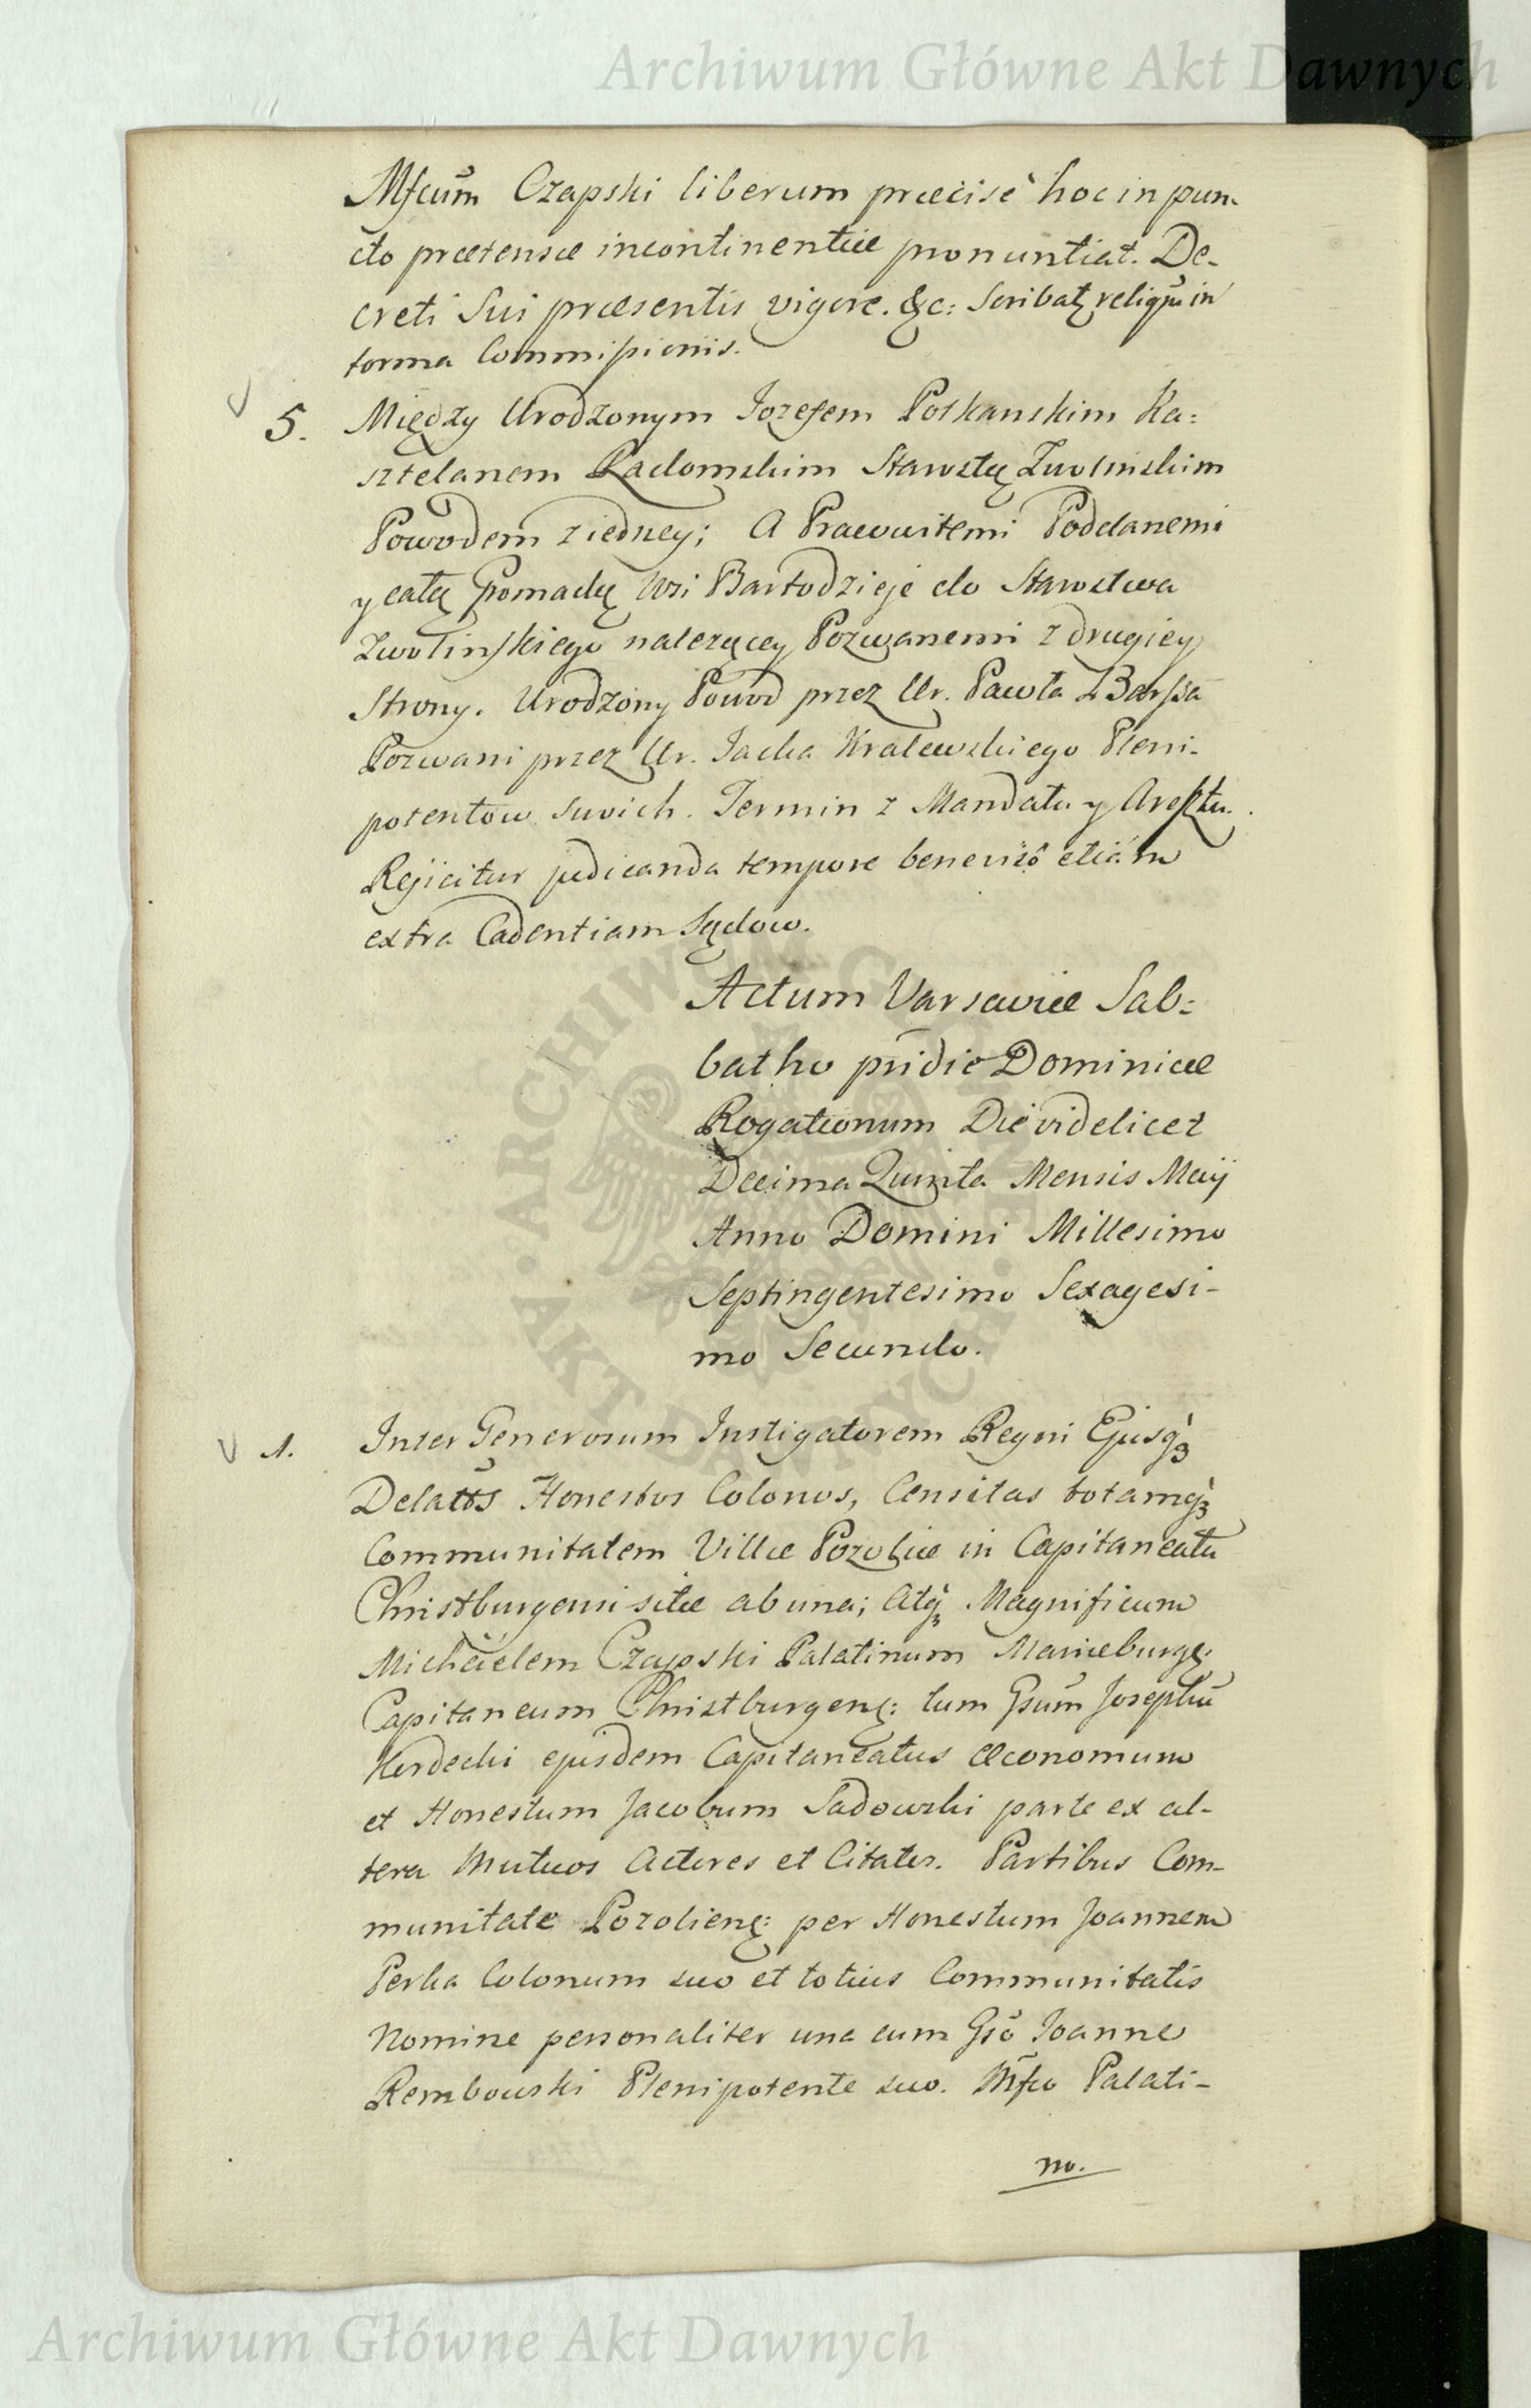 Archiwum Główne Akt Dawnych
Mfcum̃ Czapski liberum præcisè hoc in pun-
cto prætensæ incontinentiæ pronuntiat. De-
creti Sui præsentis vigore. &c: Scribat reliq̃ in
forma Commissionis.
5. Między Urodzonym Jozefem Potkanskim Ka:
sztelanem Radomskim Starostą Zwolinskim
Powodem z iedney; A Pracowitemi Poddanemi
y całą Gromadą Wsi Bartodzieje do Starostwa
Zwolinskiego nalezącey Pozwanemi z drugiey
Strony. Urodzony Powod przez Ur. Pawła Barssa
Pozwani przez Ur. Jacka Kralewskiego Pleni-
potentow swoich. Termin z Mandatu y Aresztu.
Rejicitur judicanda tempore beneviso etiam
extra Cadentiam Sądow.
Actum Varsaviæ Sab:
batho pridie Dominicæ
Rogationum Die videlicet
Decima Quinta Mensis Maij
Anno Domini Millesimo
Septingentesimo Sexagesi-
mo Secundo.
1. Inter Generosum Instigatorem Regni Ejusq́3
Delatõs Honestos Colonos, Censitas totamq́3
Communitatem Villæ Pozoliæ in Capitaneatu
Christburgensi sitæ ab una; Atq́3 Magnificum
Michaelem Czapski Palatinum Mariæburg:
Capitaneum Christburgen: tum Gsum̃ Josephũ
Kerdecki ejusdem Capitaneatus Œconomum
et Honestum Jacobum Sadowski parte ex al-
tera Mutuos Actores et Citatos. Partibus Com-
munitate Pozolien: per Honestum Joannem
Perka Colonum suo et totius Communitatis
Nomine personaliter una cum Gsõ Joanne
Rembowski Plenipotente suo. Mf̃co Palati-
no.
ARCHIWUM GŁÓWNE
AKT DAWNYCH
Archiwum Główne Akt Dawnych